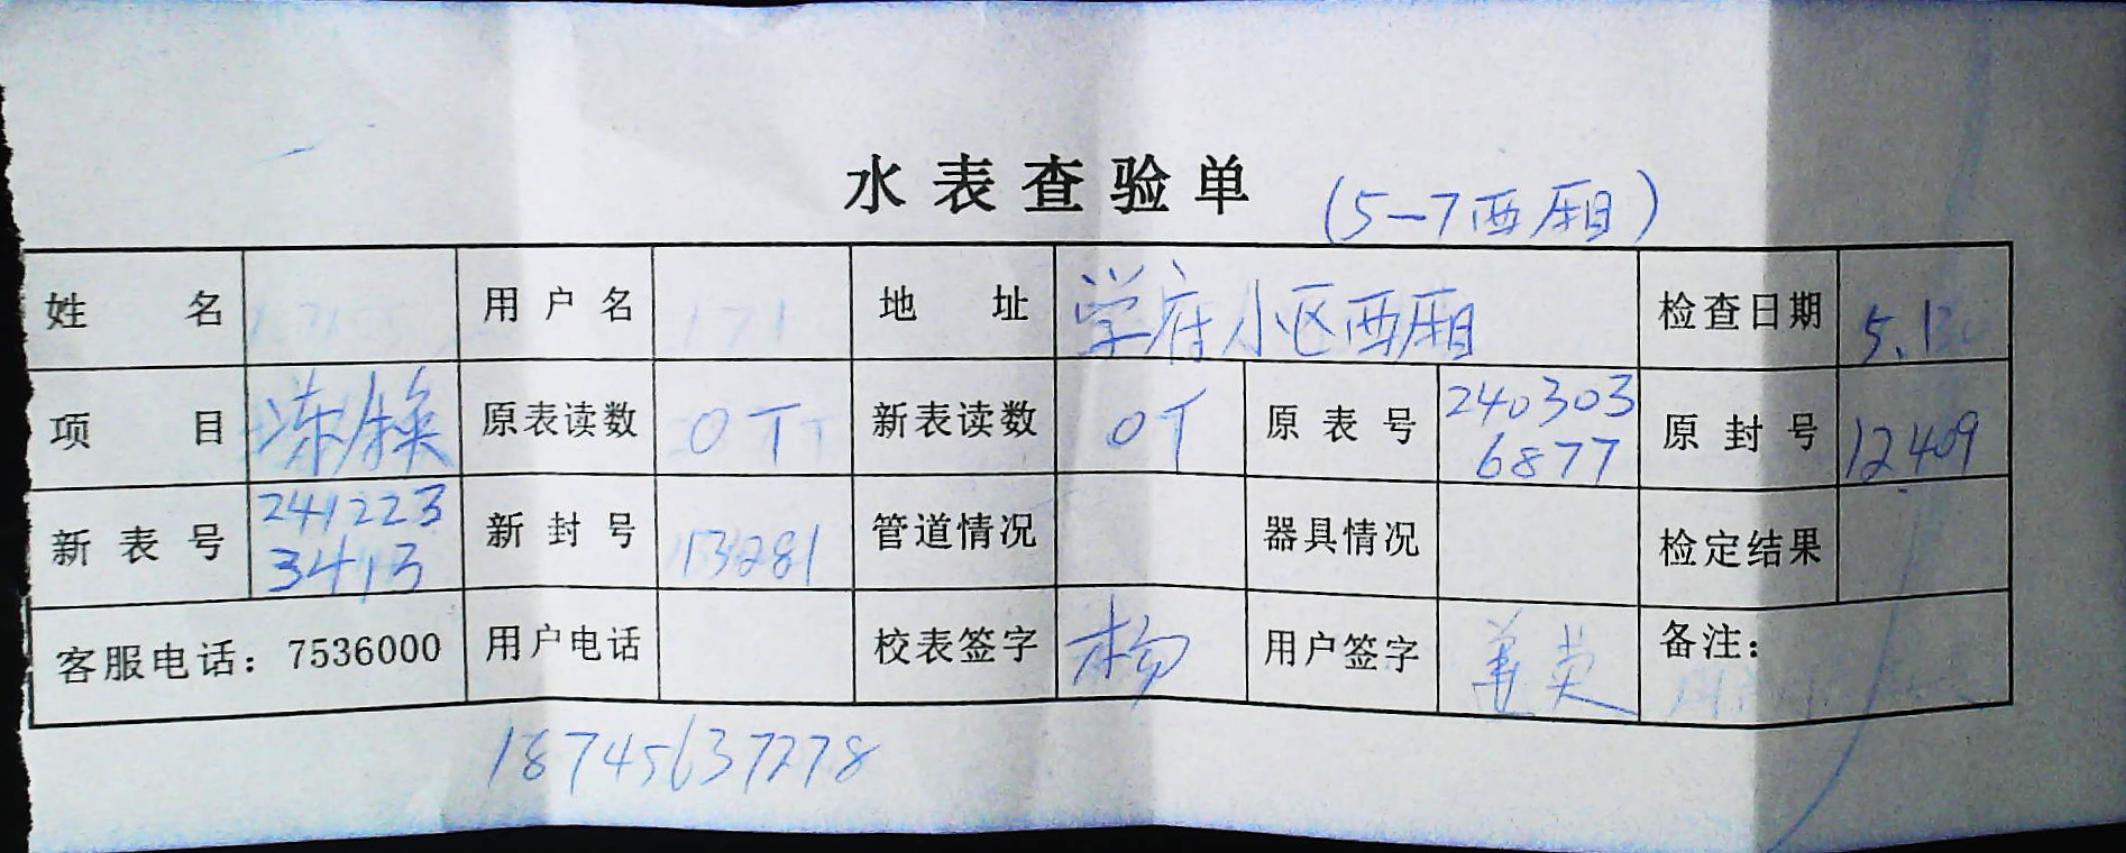 水表查验单 (5-7西厢)
姓名 用户名 地址 学府小区西厢 检查日期 5.13
项目 冻换 原表读数 0T 新表读数 0T 原表号 240303 6877 原封号 12409
新表号 241223 3413 新封号 13281 管道情况 器具情况 检定结果
客服电话：7536000 用户电话 校表签字 杨 用户签字 备注：
18745637278